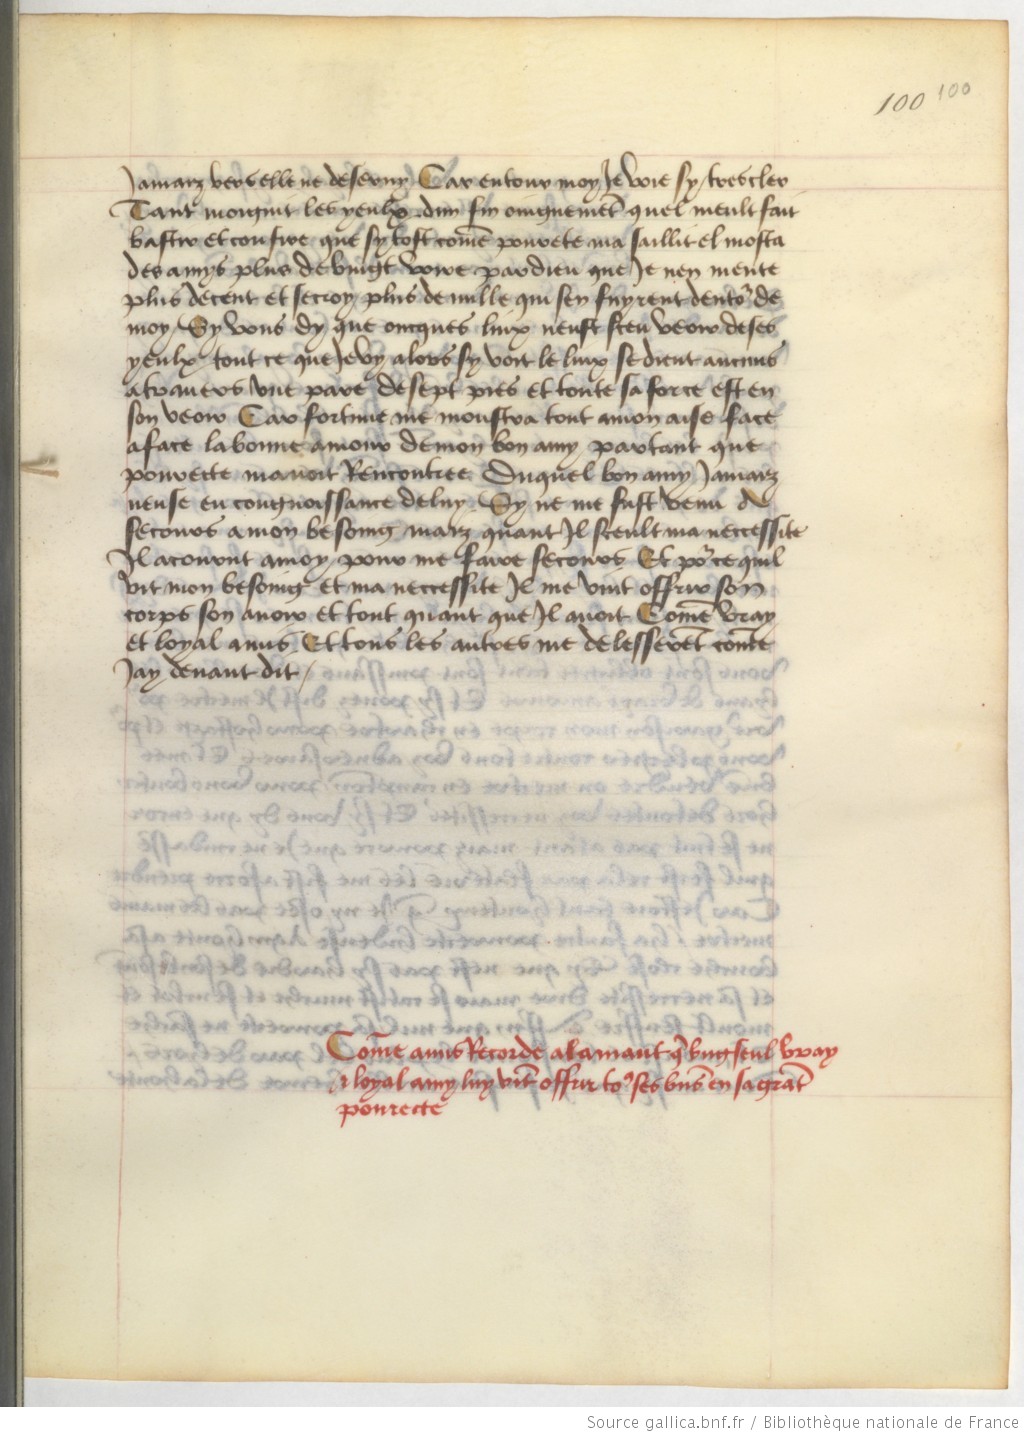 100 100
Jamaiz vers elle ne deserviz Car entour moy Je voie sy trescler
Tant moignit les yeulx dun fin oingnement quel meult fait
bastir et confire que sy tost come povrete ma saillit el mosta
des amys plus de vingt voire par dieu que Je nen mente
plus de cent et sccroy plus de mille qui sen fuyrent dento.' de
moy Sy vous dy que oncques linx neust sceu veoir de ses
yeulx tout ce que Je vy alors sy voit le linx se dient aucuns
atravers une pare de sept pies et toute sa force est en
son veoir Car fortune me monstra tout amon aise face
aface la bonne amour de mon bon amy partant que
pourette mavoit Rencontree Duquel bon amy Jamaiz
neuse eu congnoissance de luy Sy ne me fust venu A
secours amon besoing maiz quant Il sceult ma neccessite
Il acourut amoy pour me faire secours Et po' ce quil
vit mon besoing et ma neccessite Il me vint offrir son
corps son avoir et tout quant que Il avoit Come vray
et loyal amis Et tous les autres me delesseret come
Jay devant dit
Come amis Recorde alamant q vng seul vray
& loyal amy luy vit offrir to' ses bns en sa grat
pourecte
Source gallica.bnf.fr / Bibliothèque nationale de France